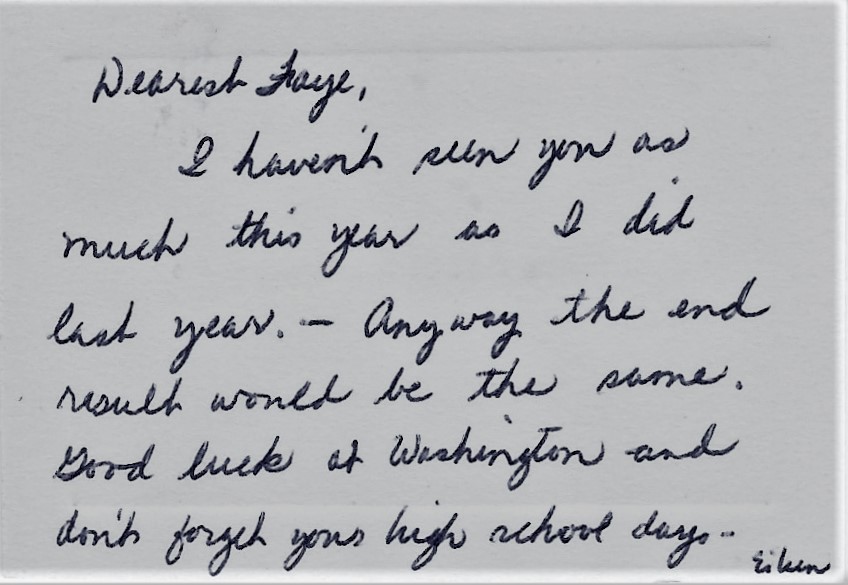 Dearest Faye,
I haven't seen you as
much this year as I did
last year. — Anyway the end
result would be the same.
Good luck at Washington and
don't forget your high school days -
Eileen